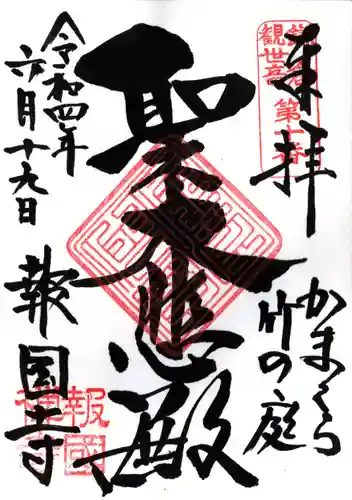 奉拝
かまくら
竹の庭
聖大悲殿
令和四年
六月十九日
報国寺
観世音
第十番
報國